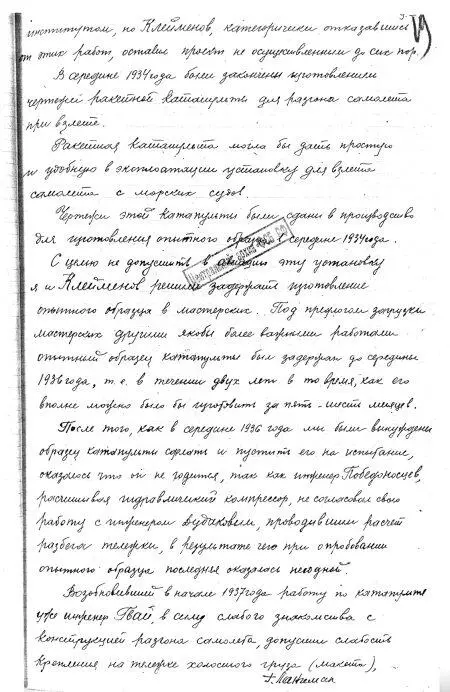 3.
институтом, но Клейменов, категорически отказавшись
от этих работ, оставив проект не осуществленным до сих пор.
В середине 1934 года были закончены изготовлением
чертежи ракетной катапульты для разгона самолета
при взлете.
Ракетная катапульта могла бы дать простую
и удобную в эксплоатации установку для взлета
самолета с морских судов.
Чертежи этой катапульты были сданы в производство
для изготовления опытного образца в середине 1934 года.
С целью не допустить в авиацию эту установку
я и Клейменов решили задержать изготовление
опытного образца в мастерских. Под предлогом загрузки
мастерских другими якобы более важными работами
опытный образец катапульты был задержан до середины
1936 года, т.е. в течении двух лет в то время, как его
вполне можно было бы изготовить за пять-шесть месяцев.
После того, как в середине 1936 года мы были вынуждены
образец катапульты сделать и пустить его на испытание,
оказалось что он не годится, так как инженер Победоносцев,
расчитывая гидравлический компрессор, не согласовал свою
работу с инженером Дудаковым, проводившим расчет
разбега тележки, в результате чего при опробовании
опытного образца последнее оказалось негодной.
Возобновивший в начале 1937 года работу по катапульте
уже инженер Гвай в силу слабого знакомства с
конструкцией разгона самолета, допустил слабость
крепления на тележке холостого груза (макета),
Г. Лангемак
Центральный архив ФСБ РФ